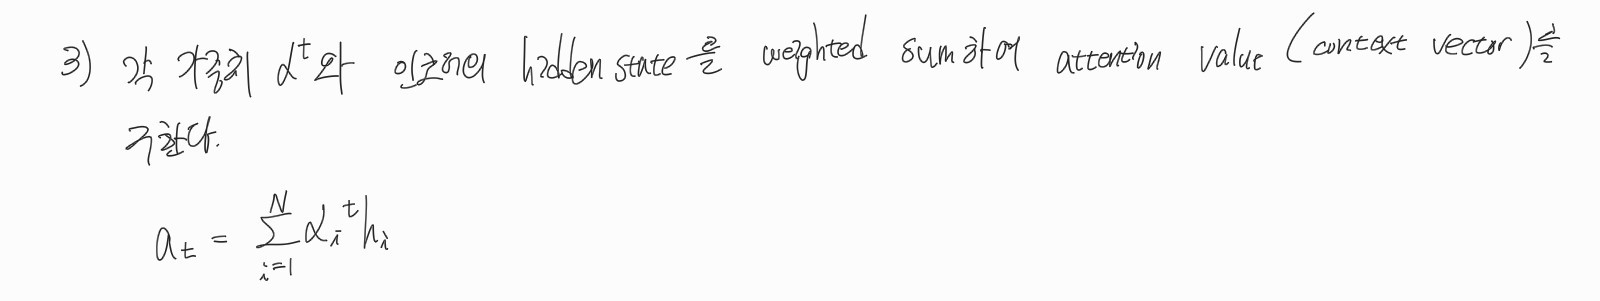 3) 각 가중치 α^t와 인코더의 hidden state을 weighted sum하여 attention value (context vector)를
구한다.
a_t = \sum_{i=1}^{N} α_i^t h_i